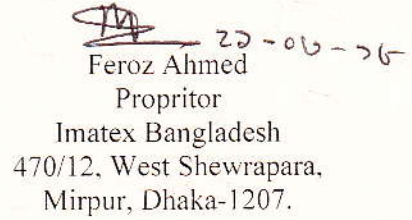 Feroz Ahmed
Propritor
Imatex Bangladesh
470/12, West Shewrapara,
Mirpur, Dhaka-1207.